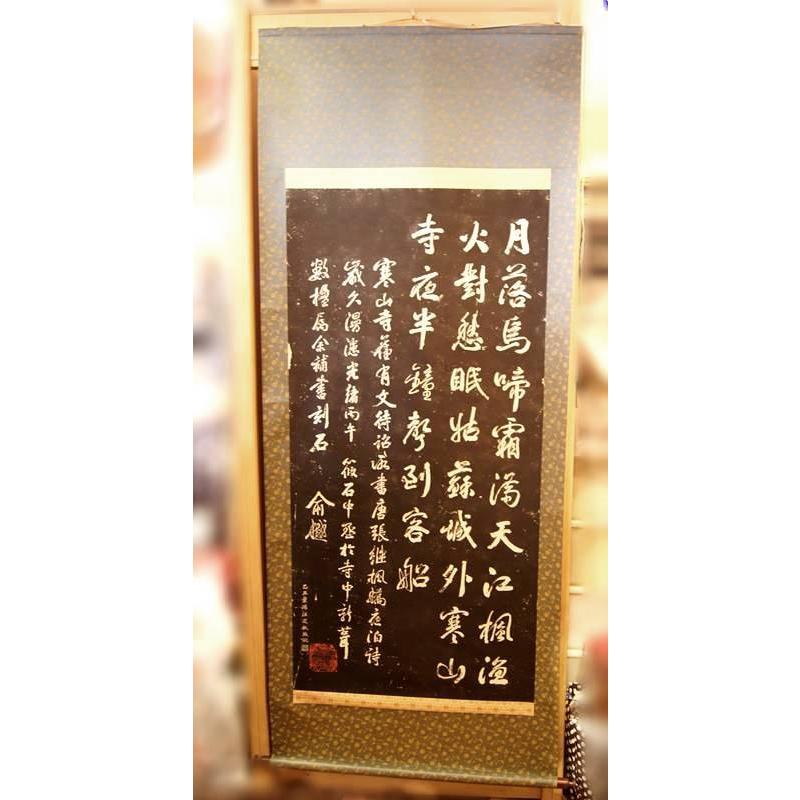 月落烏啼霜滿天江楓漁
火對愁眠姑蘇城外寒山
寺夜半鐘聲到客船
寒山寺舊有文待詔所書唐張繼楓橋夜泊詩
歲久漫漶光緒丙午筱石中丞於寺中新葺
數楹属余補書刻石
俞樾